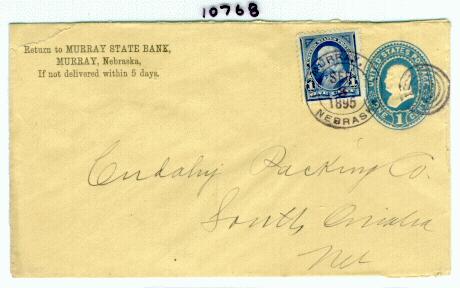 10768
Return to MURRAY STATE BANK,
MURRAY, Nebraska,
If not delivered within 5 days.
MURRAY
SEP
1895
NEBRAS
1 1
UNITED STATES POSTAGE
ONE 1 CENT
Cudahy Packing Co.
South Omaha
Neb